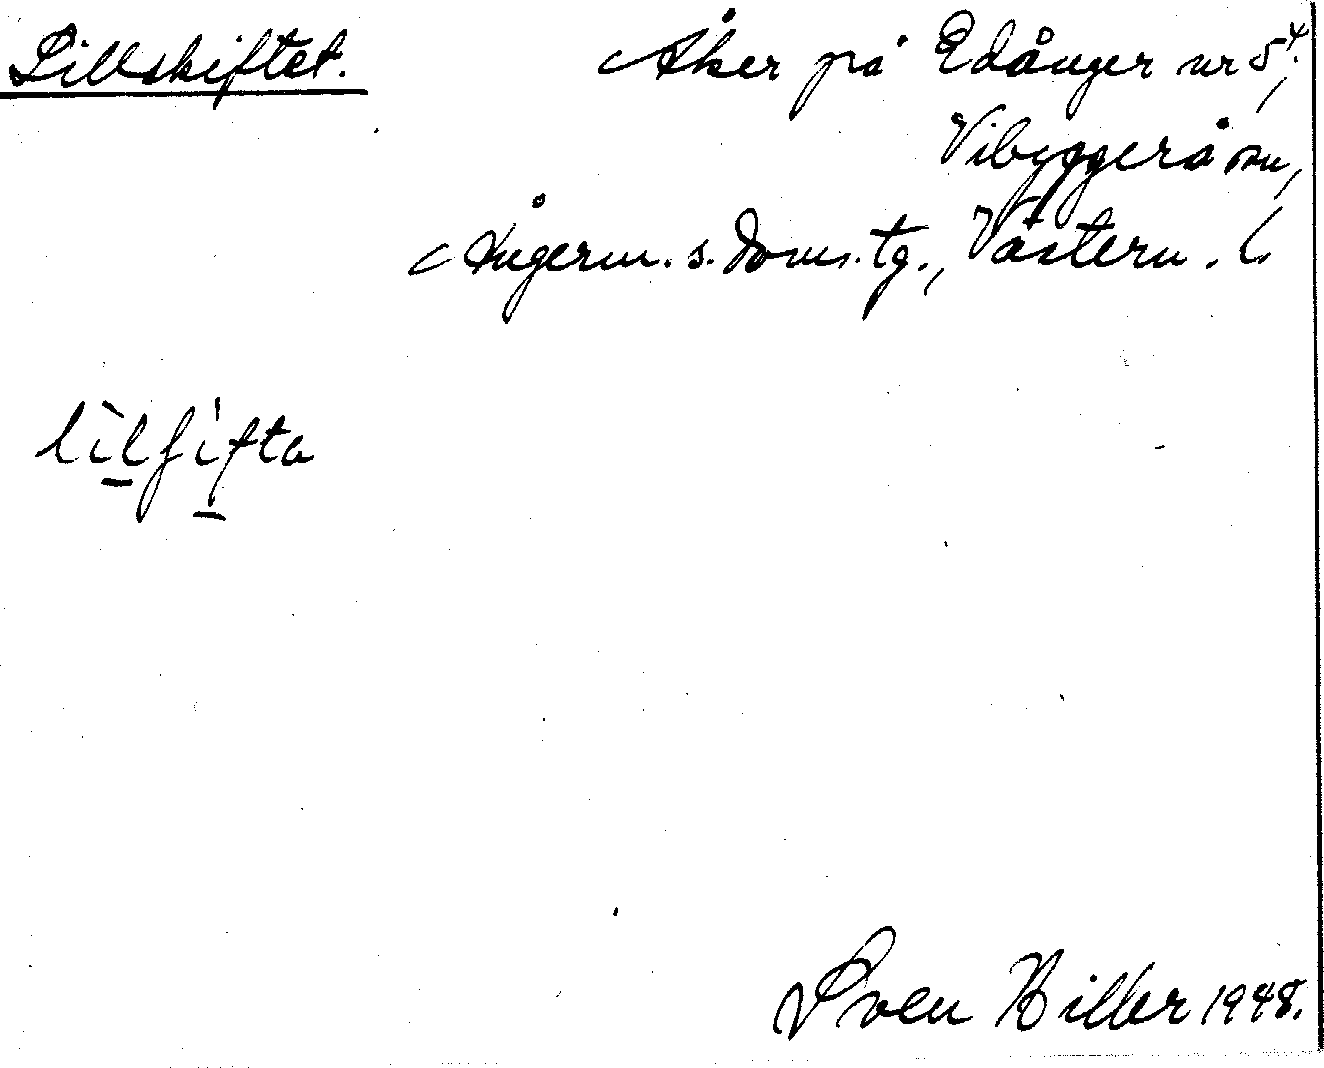 Lillskiftet.
Åker på Edånger nr 5⁴,
Vibyggerå sn,
Ångerm. s. doms. tg., Västern. l.
lìlʃifta
Sven Hiller 1948.